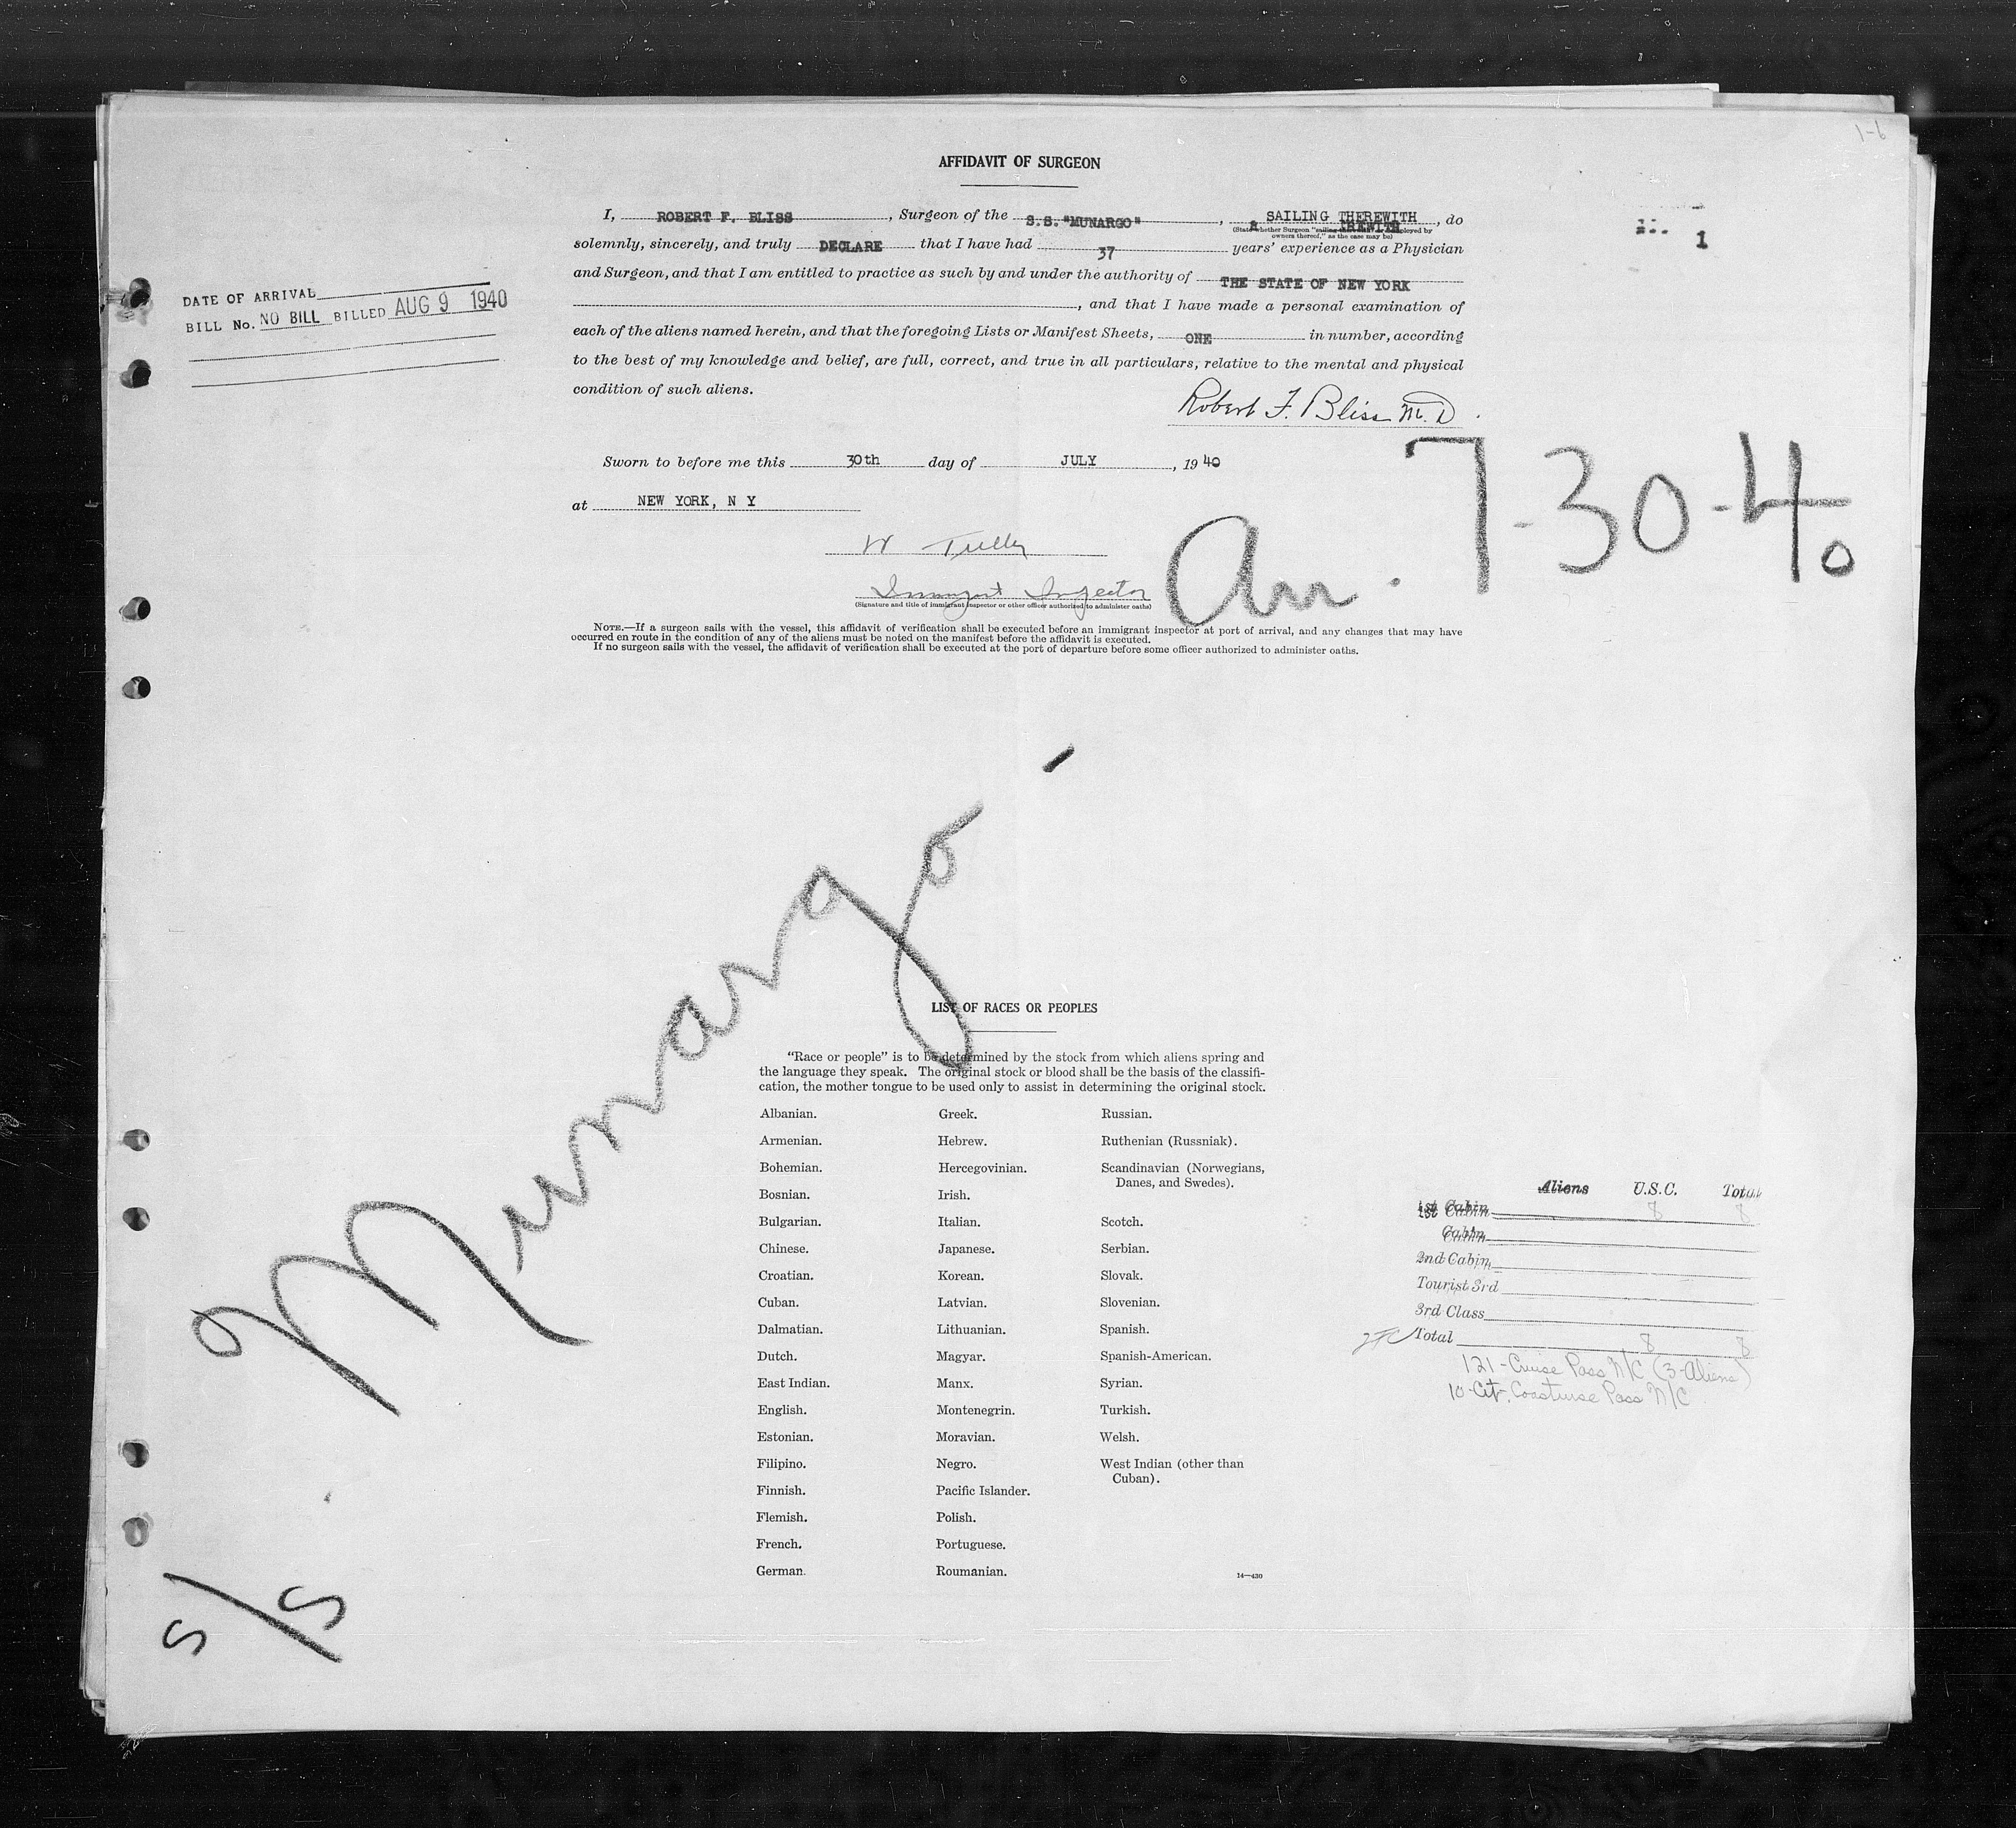 1-6
AFFIDAVIT OF SURGEON
I, ROBERT F. BLISS, Surgeon of the S.S. "MUNARGO", SAILING THEREWITH, do
(State whether Surgeon "sailing employed by
owners thereof," as the case may be)
1
solemnly, sincerely, and truly DECLARE that I have had 37 years' experience as a Physician
and Surgeon, and that I am entitled to practice as such by and under the authority of THE STATE OF NEW YORK
, and that I have made a personal examination of
each of the aliens named herein, and that the foregoing Lists or Manifest Sheets, ONE in number, according
to the best of my knowledge and belief, are full, correct, and true in all particulars, relative to the mental and physical
condition of such aliens.
DATE OF ARRIVAL
BILL No. NO BILL BILLED AUG 9 1940
Robert F. Bliss M.D.
Sworn to before me this 30th day of JULY, 1940
at NEW YORK, N Y
W Tully
Immigrant Inspector
(Signature and title of immigrant inspector or other officer authorized to administer oaths)
Arr. 7-30-40
NOTE.—If a surgeon sails with the vessel, this affidavit of verification shall be executed before an immigrant inspector at port of arrival, and any changes that may have
occurred en route in the condition of any of the aliens must be noted on the manifest before the affidavit is executed.
If no surgeon sails with the vessel, the affidavit of verification shall be executed at the port of departure before some officer authorized to administer oaths.
S/S Munargo -
LIST OF RACES OR PEOPLES
"Race or people" is to be determined by the stock from which aliens spring and
the language they speak. The original stock or blood shall be the basis of the classifi-
cation, the mother tongue to be used only to assist in determining the original stock.
Albanian.
Armenian.
Bohemian.
Bosnian.
Bulgarian.
Chinese.
Croatian.
Cuban.
Dalmatian.
Dutch.
East Indian.
English.
Estonian.
Filipino.
Finnish.
Flemish.
French.
German.
Greek.
Hebrew.
Hercegovinian.
Irish.
Italian.
Japanese.
Korean.
Latvian.
Lithuanian.
Magyar.
Manx.
Montenegrin.
Moravian.
Negro.
Pacific Islander.
Polish.
Portuguese.
Roumanian.
Russian.
Ruthenian (Russniak).
Scandinavian (Norwegians,
Danes, and Swedes).
Scotch.
Serbian.
Slovak.
Slovenian.
Spanish.
Spanish-American.
Syrian.
Turkish.
Welsh.
West Indian (other than
Cuban).
14—430
Aliens U.S.C. Total
1st Cabin 8 8
Cabin
2nd Cabin
Tourist 3rd
3rd Class
Total 8 8
121-Cruise Pass N/C (3-Aliens)
10-Cit. Coastwise Pass N/C